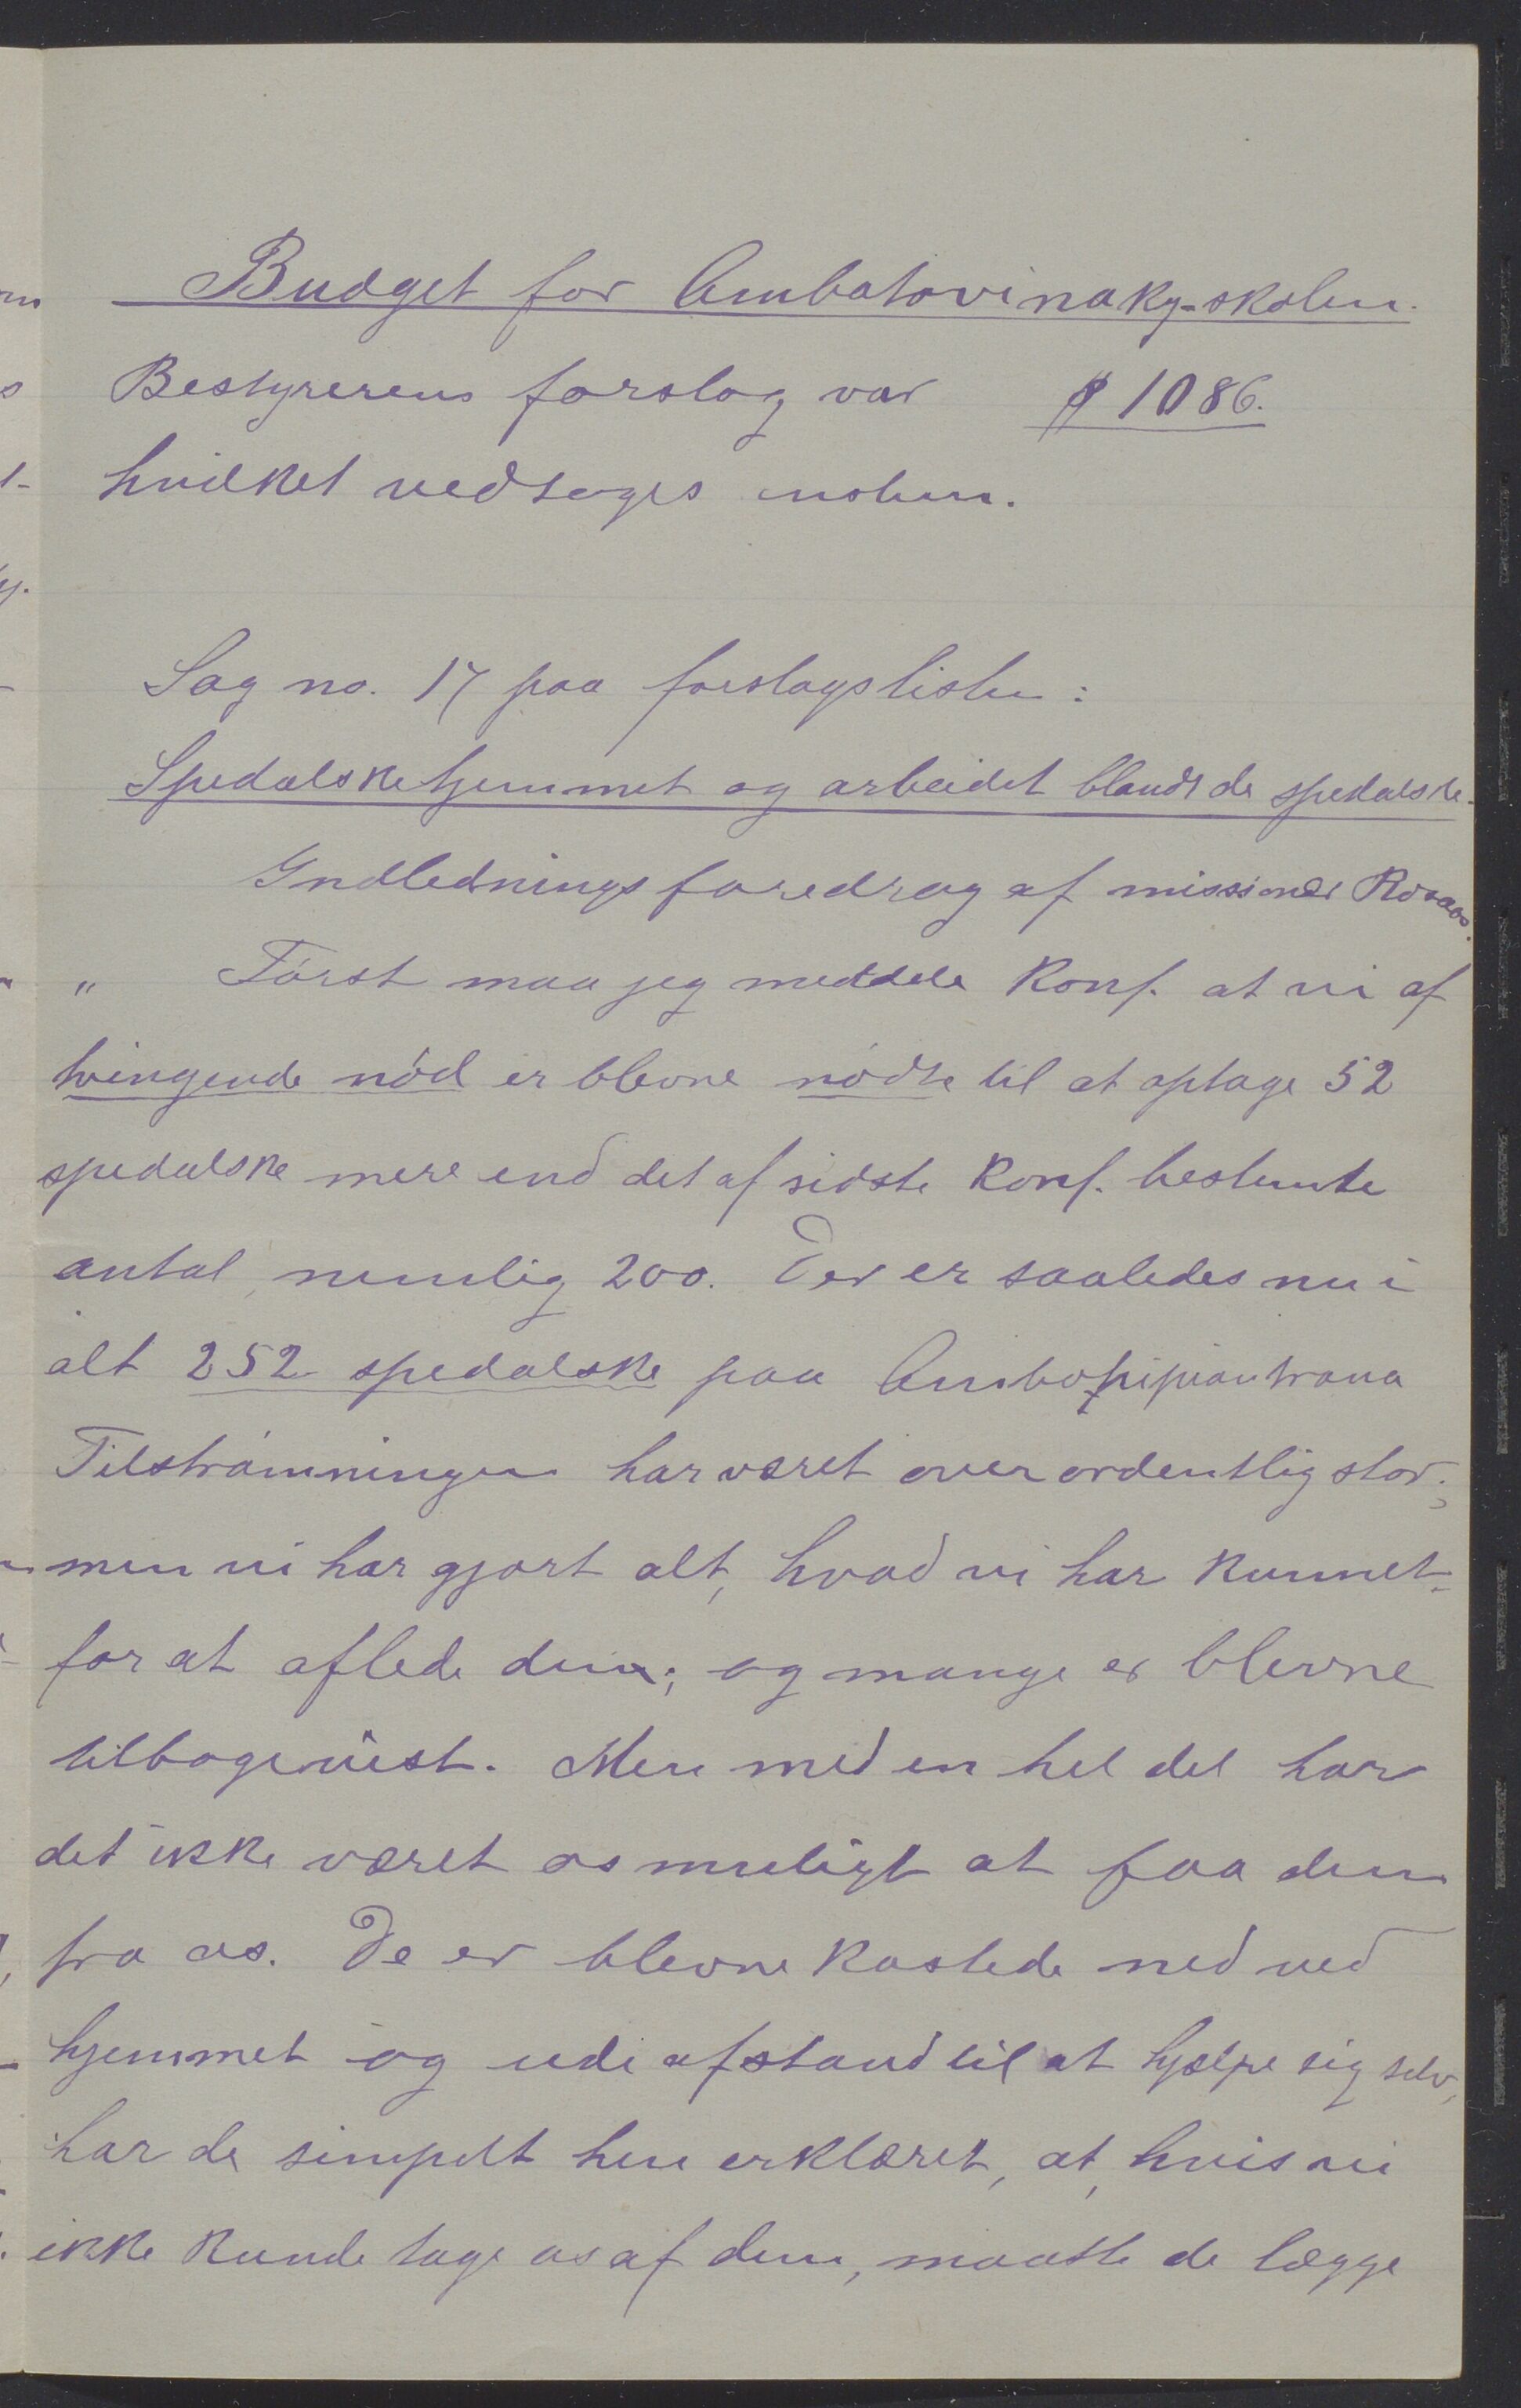 Budget for Ambatovinaky-skolen.
Bestyrerens forslag var $ 1086.
hvilket vedtoges enstem.
Sag no. 17 paa forslagslisten:
Spedalskehjemmet og arbeidet blandt de spedalske.
Indledningsforedrag af missionær Rosaas.
" Først maa jeg meddele Konf. at vi af
tvingende nød er blevne nødte til at optage 52
spedalske mere end det af sidste Konf. bestemte
antal, nemlig 200. Der er saaledes nu i
alt 252 spedalske paa Ambohipiantrana
Tilstrømningen har været overordentlig stor;
men vi har gjort alt, hvad vi har kunnet
for at aflede den; og mange er blevne
tilbagevist. Men med en hel del har
det ikke været os muligt at faa dem
fra os. De er blevne kastede ned ved
hjemmet og ude afstand til at hjælpe sig selv,
har de simpelt hen erklæret, at, hvis vi
ikke kunde tage os af dem, maatte de lægge